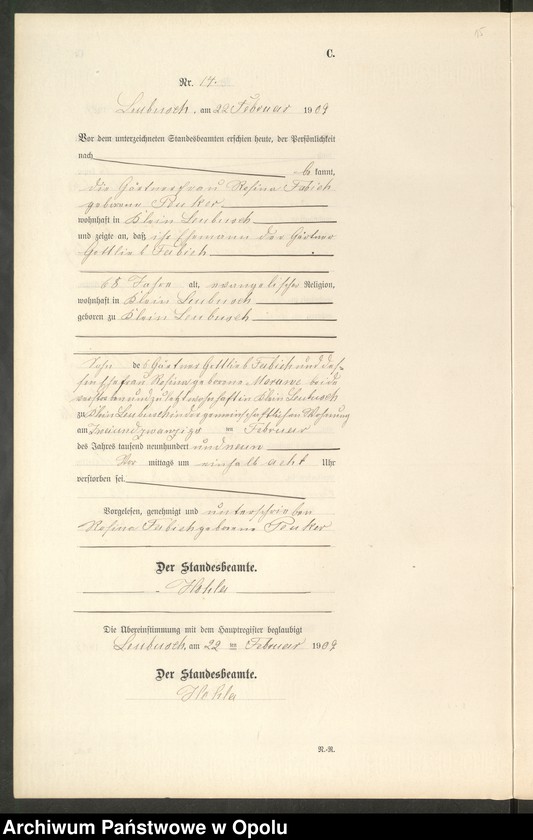 C.
Nr. 17.
Leubusch, am 22 Februar 1909
Vor dem unterzeichneten Standesbeamten erschien heute, der Persönlichkeit
nach be kannt,
die Gärtnerfrau Rosina Fabich
geborene Puker
wohnhaft in Klein Leubusch
und zeigte an, daß ihr Ehemann der Gärtner
Gottlieb Fabich
68 Jahre alt, evangelischer Religion,
wohnhaft in Klein Leubusch
geboren zu Klein Leubusch
Sohn des Gärtners Gottlieb Fabich und des-
sen Ehefrau Rosina geborene Morawe beide
verstorben und zuletzt wohnhaft in Klein Leubusch
zu Klein Leubusch in der gemeinschaftlichen Wohnung
am Zweiundzwanzigs ten Februar
des Jahres tausend neunhundert und neun
Vor mittags um einhalb acht Uhr
verstorben sei.
Vorgelesen, genehmigt und unterschrieben
Rosina Fabich geborene Puker
Der Standesbeamte.
Hohla
Die Übereinstimmung mit dem Hauptregister beglaubigt
Leubusch, am 22 ten Februar 1909
Der Standesbeamte.
Hohla
N.-R.
Archiwum Państwowe w Opolu